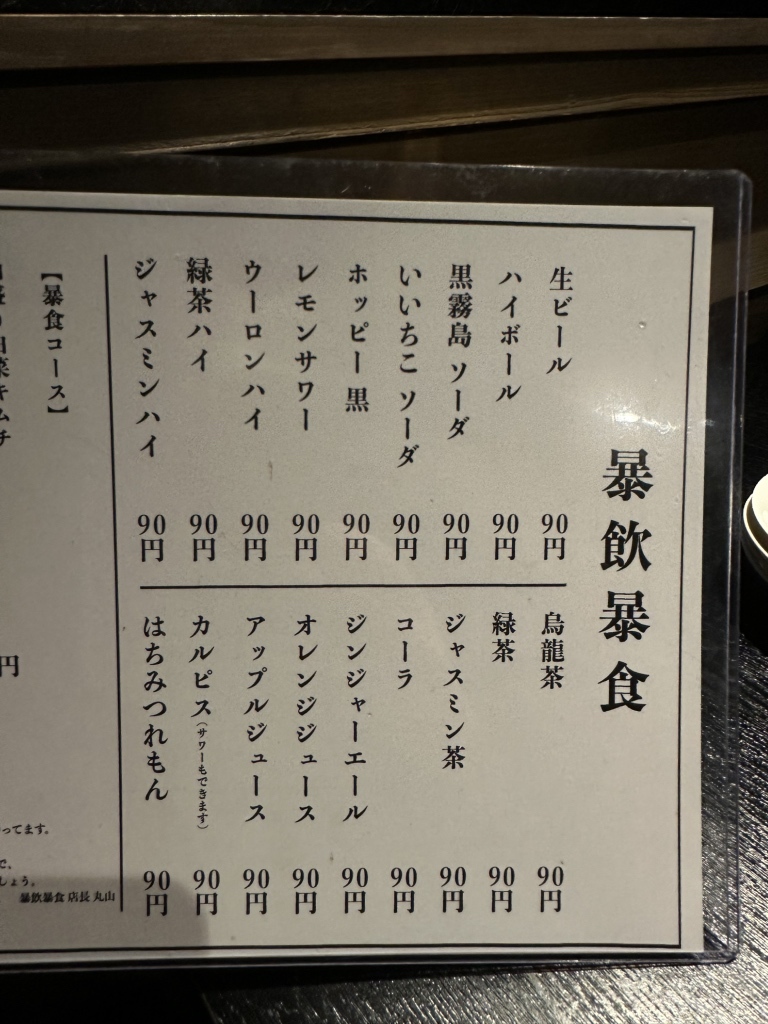 暴飲暴食
生ビール 90円
ハイボール 90円
黒霧島 ソーダ 90円
いいちこ ソーダ 90円
ホッピー 黒 90円
レモンサワー 90円
ウーロンハイ 90円
緑茶ハイ 90円
ジャスミンハイ 90円
烏龍茶 90円
緑茶 90円
ジャスミン茶 90円
コーラ 90円
ジンジャーエール 90円
オレンジジュース 90円
アップルジュース 90円
カルピス（サワーもできます） 90円
はちみつれもん 90円
【暴食コース】
キムチ
円
ってます。
で、
しょう。
暴飲暴食 店長 丸山